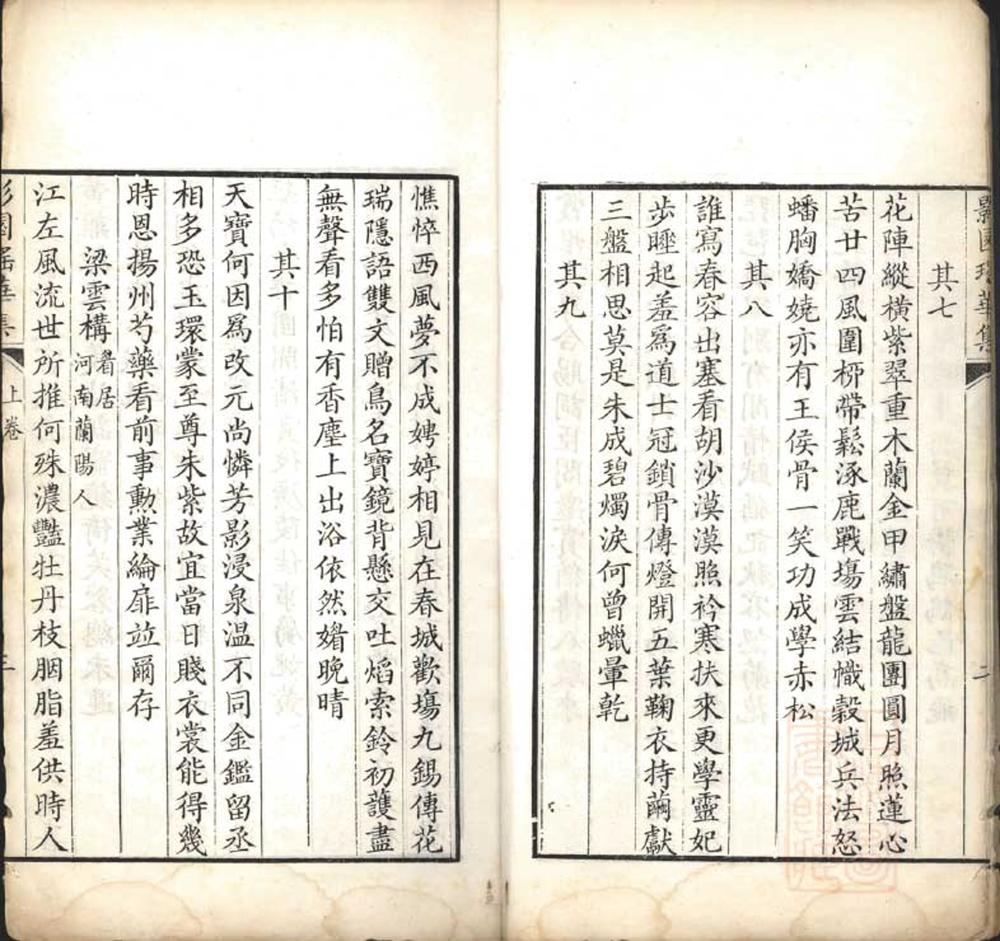 影園瑤華集
其七
花陣縱橫紫翠重木蘭金甲繡盤龍團圓月照蓮心
苦廿四風圍桺帶鬆涿鹿戰塲雲結幟縠城兵法怒
蟠胸嬌嬈亦有王侯骨一笑功成學赤松
其八
誰寫春容出塞看胡沙漠漠照衿寒扶來更學靈妃
步睡起羞爲道士冠鎖骨傳燈開五葉鞠衣持繭獻
三盤相思莫是朱成碧燭淚何曾蠟暈乾
其九
二
憔悴西風夢不成娉婷相見在春城歡塲九錫傳花
瑞隱語雙文贈鳥名寶鏡背懸交吐焰索鈴初護盡
無聲看多怕有香塵上出浴依然媚晚晴
其十
天寶何因爲改元尚憐芳影浸泉溫不同金鑑留丞
相多恐玉環蒙至尊朱紫故宜當日賤衣裳能得幾
時恩揚州芍藥看前事勳業綸扉並爾存
梁雲構眉居
河南蘭陽人
江左風流世所推何殊濃豔牡丹枝胭脂羞供時人
影園瑤華集
上卷
三